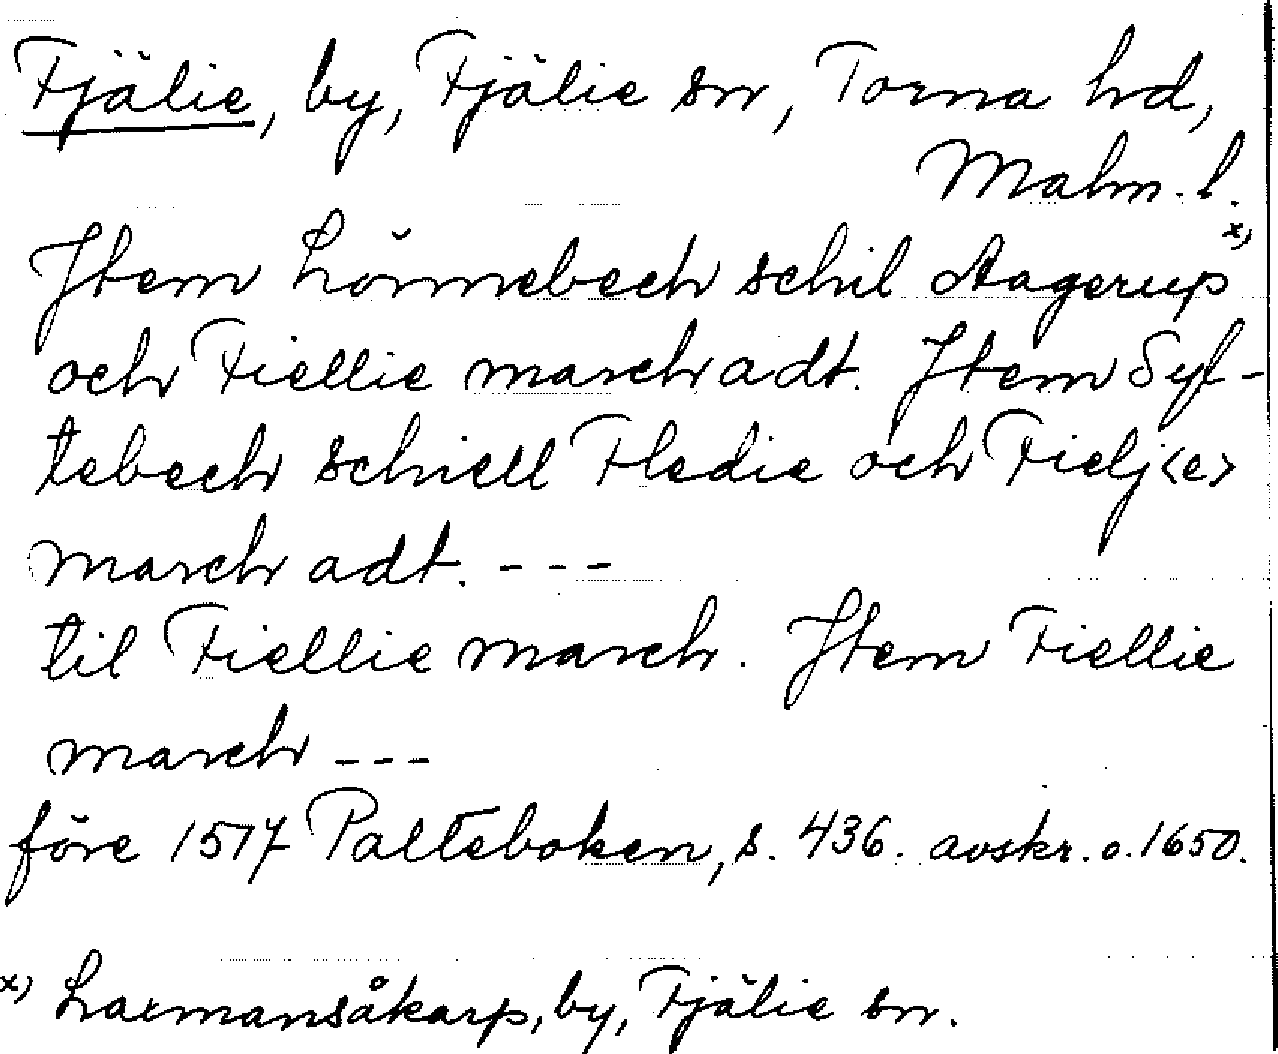 Fjälie, by, Fjälie sn, Torna hd,
Malm. l.
Jtem Lönnebech schil Aagerup x)
och Fiellie march adt. Jtem Syl-
tebech schiell Fledie och Fielj<e>
march adt. ---
til Fiellie march. Jtem Fiellie
march ---
före 1517 Palteboken, s. 436. avskr. o. 1650.
x) Laxmansåkarp, by, Fjälie sn.